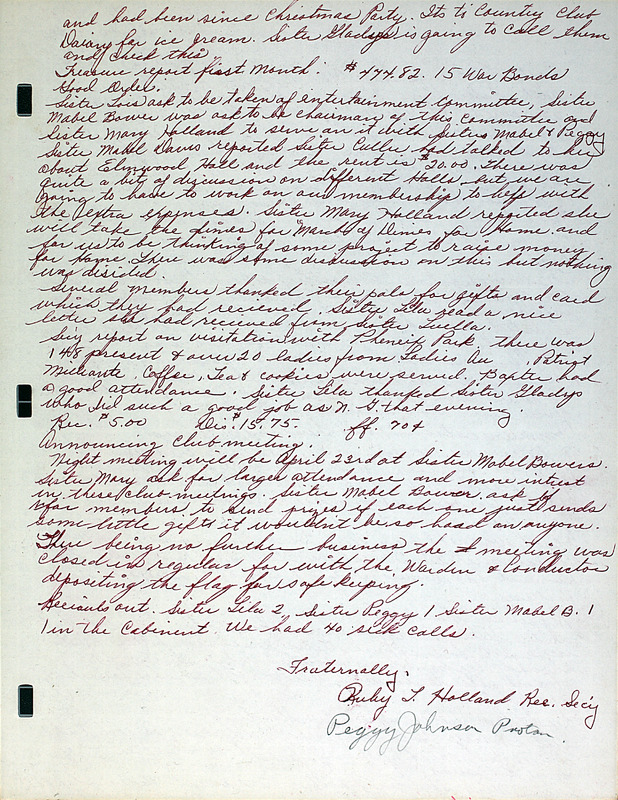 and had been since Christmas Party. Its to Country Club
Dairy for ice cream. Sister Gladys is going to call them
and check this
Treasure report first Month: $474.82. 15 War Bonds
Good Order.
Sister Lois ask to be taken of entertainment Committee, Sister
Mabel Bower was ask to be chairman of this committee and
Sister Mary Holland to serve on it with Sisters Mabel & Peggy
Sister Mabel Davis reported Sister Callie had talked to her
about Elmwood Hall and the rent is $20.00. There was
quite a bit of discussion on different Halls, but we are
going to have to work on our membership to help with
the extra expenses. Sister Mary Holland reported she
will take the dimes for March of Dimes for Home and
for us to be thinking of some project to raise money
for Home. There was some discussion on this but nothing
was disided.
Several members thanked their pals for gifts and card
which they had recieved. Sister Lila read a nice
letter she had recieved from Sister Luella.
Secy report on visitation with Park there was
148 present & over 20 ladies from Ladies Au , Patriot
Militante. Coffee, Tea & cookies were served. had
a good attendance. Sister Lila thanked Sister Gladys
who did such a good job as N. G. that evening.
Rec. $5.00 Dis. $15.75. ff. 70¢
Announcing Club meeting.
Night meeting will be April 23rd at Sister Mabel Bowers.
Sister Mary ask for larger attendance and more intrest
in these club meetings. Sister Mabel Bower ask
for members to send prizes if each one just sends
some little gifts it wouldn't be so hard on anyone.
There being no further business the meeting was
closed in regular for with the Warden & Conductor
depositing the flag for safe keeping.
out. Sister Lila 2, Sister Peggy 1 Sister Mabel B. 1
1 in the Cabinent. We had 40 sick calls.
Fraternally,
Ruby T. Holland Rec. Secy
Peggy Johnson Protem.